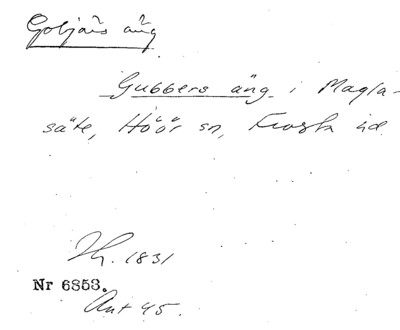 Goljans äng
Gubbers äng i Magla-
säte, Höör sn, Frosta hd.
Th. 1831
Nr 6853.
Ant 45.